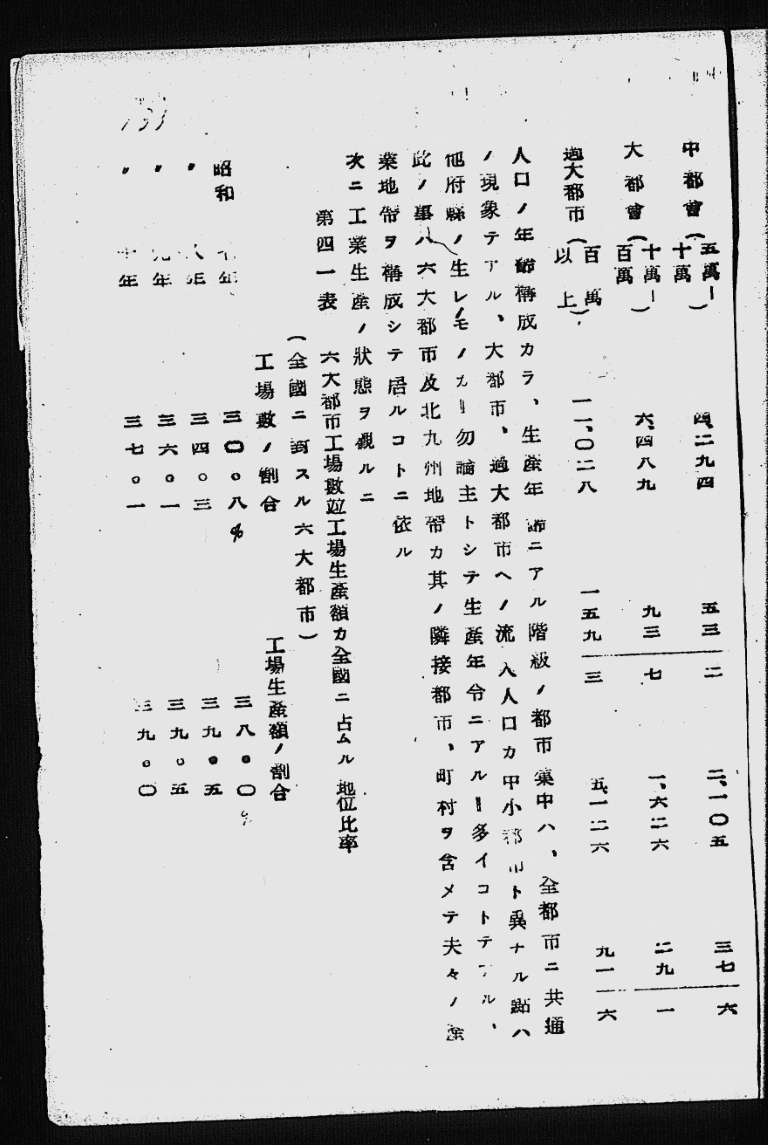 中都會（五萬—十萬） 四、二九四 五三二 二、一〇五 三七六
大都會（十萬—百萬） 六、四八九 九三七 一、六二六 二九一
過大都市（百萬以上） 一一、〇二八 一五九三 五、一二六 九一六
人口ノ年齡構成カラ、生產年齡ニアル階級ノ都市集中ハ、全都市ニ共通
ノ現象テアル、大都市、過大都市ヘノ流入人口カ中小都市ト異ナル點ハ
他府縣ノ生レノモノカ勿論主トシテ生產年令ニアル多イコトテアル、
此ノ事ハ六大都市及北九州地帶カ其ノ隣接都市、町村ヲ含メテ夫々ノ產
業地帶ヲ構成シテ居ルコトニ依ル
次ニ工業生產ノ狀態ヲ觀ルニ
第四一表 六大都市工場數竝工場生產額カ全國ニ占ムル地位比率
（全國ニ對スル六大都市）
工場數ノ割合 工場生產額ノ割合
昭和七年 三〇。八% 三八。〇%
〃八年 三四。三 三九。五
〃九年 三六。一 三九。五
〃十年 三七。一 三九。〇